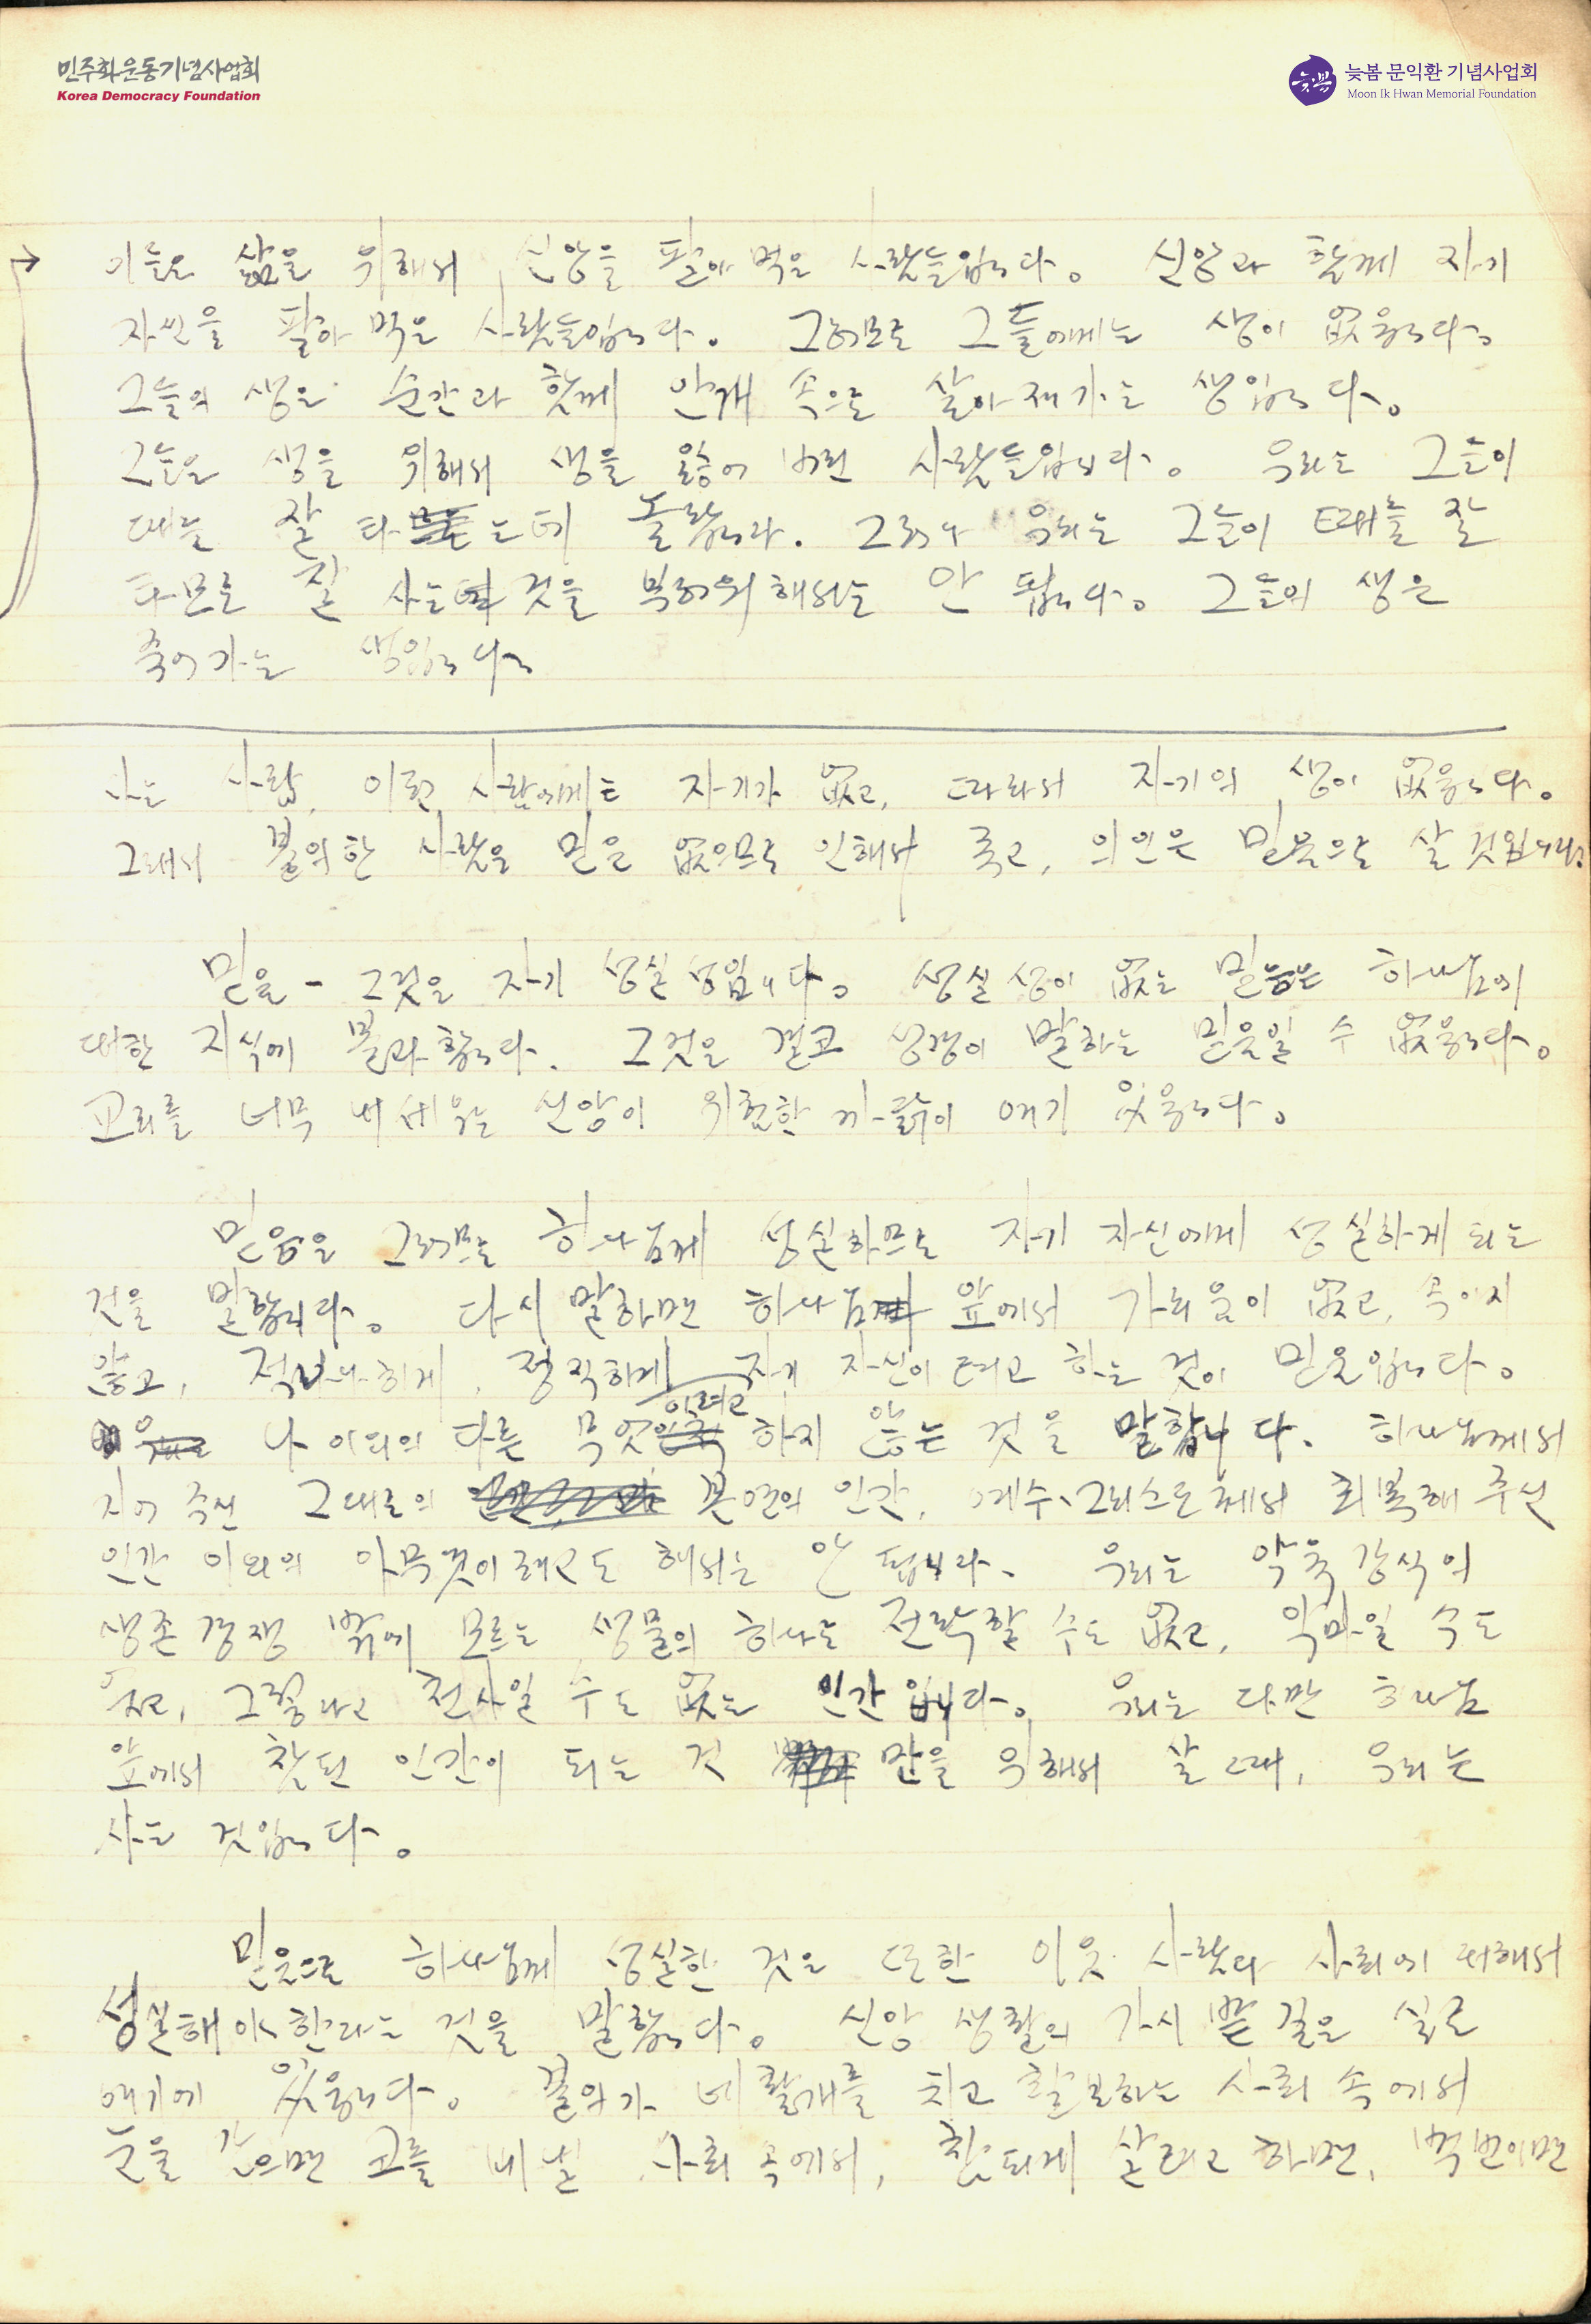 민주화운동기념사업회
Korea Democracy Foundation
늦봄
늦봄 문익환 기념사업회
Moon Ik Hwan Memorial Foundation
이들은 삶을 위해서 신앙을 팔아 먹은 사람들입니다. 신앙과 함께 자기
자신을 팔아 먹은 사람들입니다. 그러므로 그들에게는 생이 없읍니다.
그들의 생은 순간과 함께 안개 속으로 살아져가는 생입니다.
그들은 생을 위해서 생을 잃어 버린 사람들입니다. 우리는 그들이
때를 잘 타는데 놀랍니다. 그러나 우리는 그들이 때를 잘
타므로 잘 사는 것을 부러워해서는 안 됩니다. 그들의 생은
죽어가는 생입니다.
사는 사람, 이런 사람에게는 자기가 없고, 따라서 자기의 생이 없읍니다.
그래서 불의한 사람은 믿음 없으므로 인해서 죽고, 의인은 믿음으로 살 것입니다.
믿음 - 그것은 자기 성실성입니다. 성실성이 없는 믿음은 하나님에
대한 지식에 불과합니다. 그것은 결코 성경이 말하는 믿음일 수 없읍니다.
교리를 너무 내세우는 신앙이 위험한 까닭이 여기 있읍니다.
믿음은 그러므로 하나님께 성실하므로 자기 자신에게 성실하게 되는
것을 말합니다. 다시 말하면 하나님 앞에서 가리움이 없고, 속이지
않고, 적나나하게, 정직하게 자기 자신이려고 하는 것이 믿음입니다.
나 이외의 다른 무엇이려고 하지 않는 것을 말합니다. 하나님께서
지어 주신 그대로의 본연의 인간, 예수·그리스도께서 회복해 주신
인간 이외의 아무것이려고도 해서는 안 됩니다. 우리는 약육강식의
생존 경쟁 밖에 모르는 생물의 하나로 전락할 수도 없고, 악마일 수도
없고, 그렇다고 천사일 수도 없는 인간입니다. 우리는 다만 하나님
앞에서 참된 인간이 되는 것 만을 위해서 살 때, 우리는
사는 것입니다.
믿음으로 하나님께 성실한 것은 또한 이웃 사람과 사회에 대해서
성실해야 한다는 것을 말합니다. 신앙 생활의 가시밭길은 실로
여기에 있읍니다. 불의가 네 활개를 치고 활보하는 사회 속에서
눈을 감으면 코를 베낼 사회 속에서, 참되게 살려고 하면, 백번이면